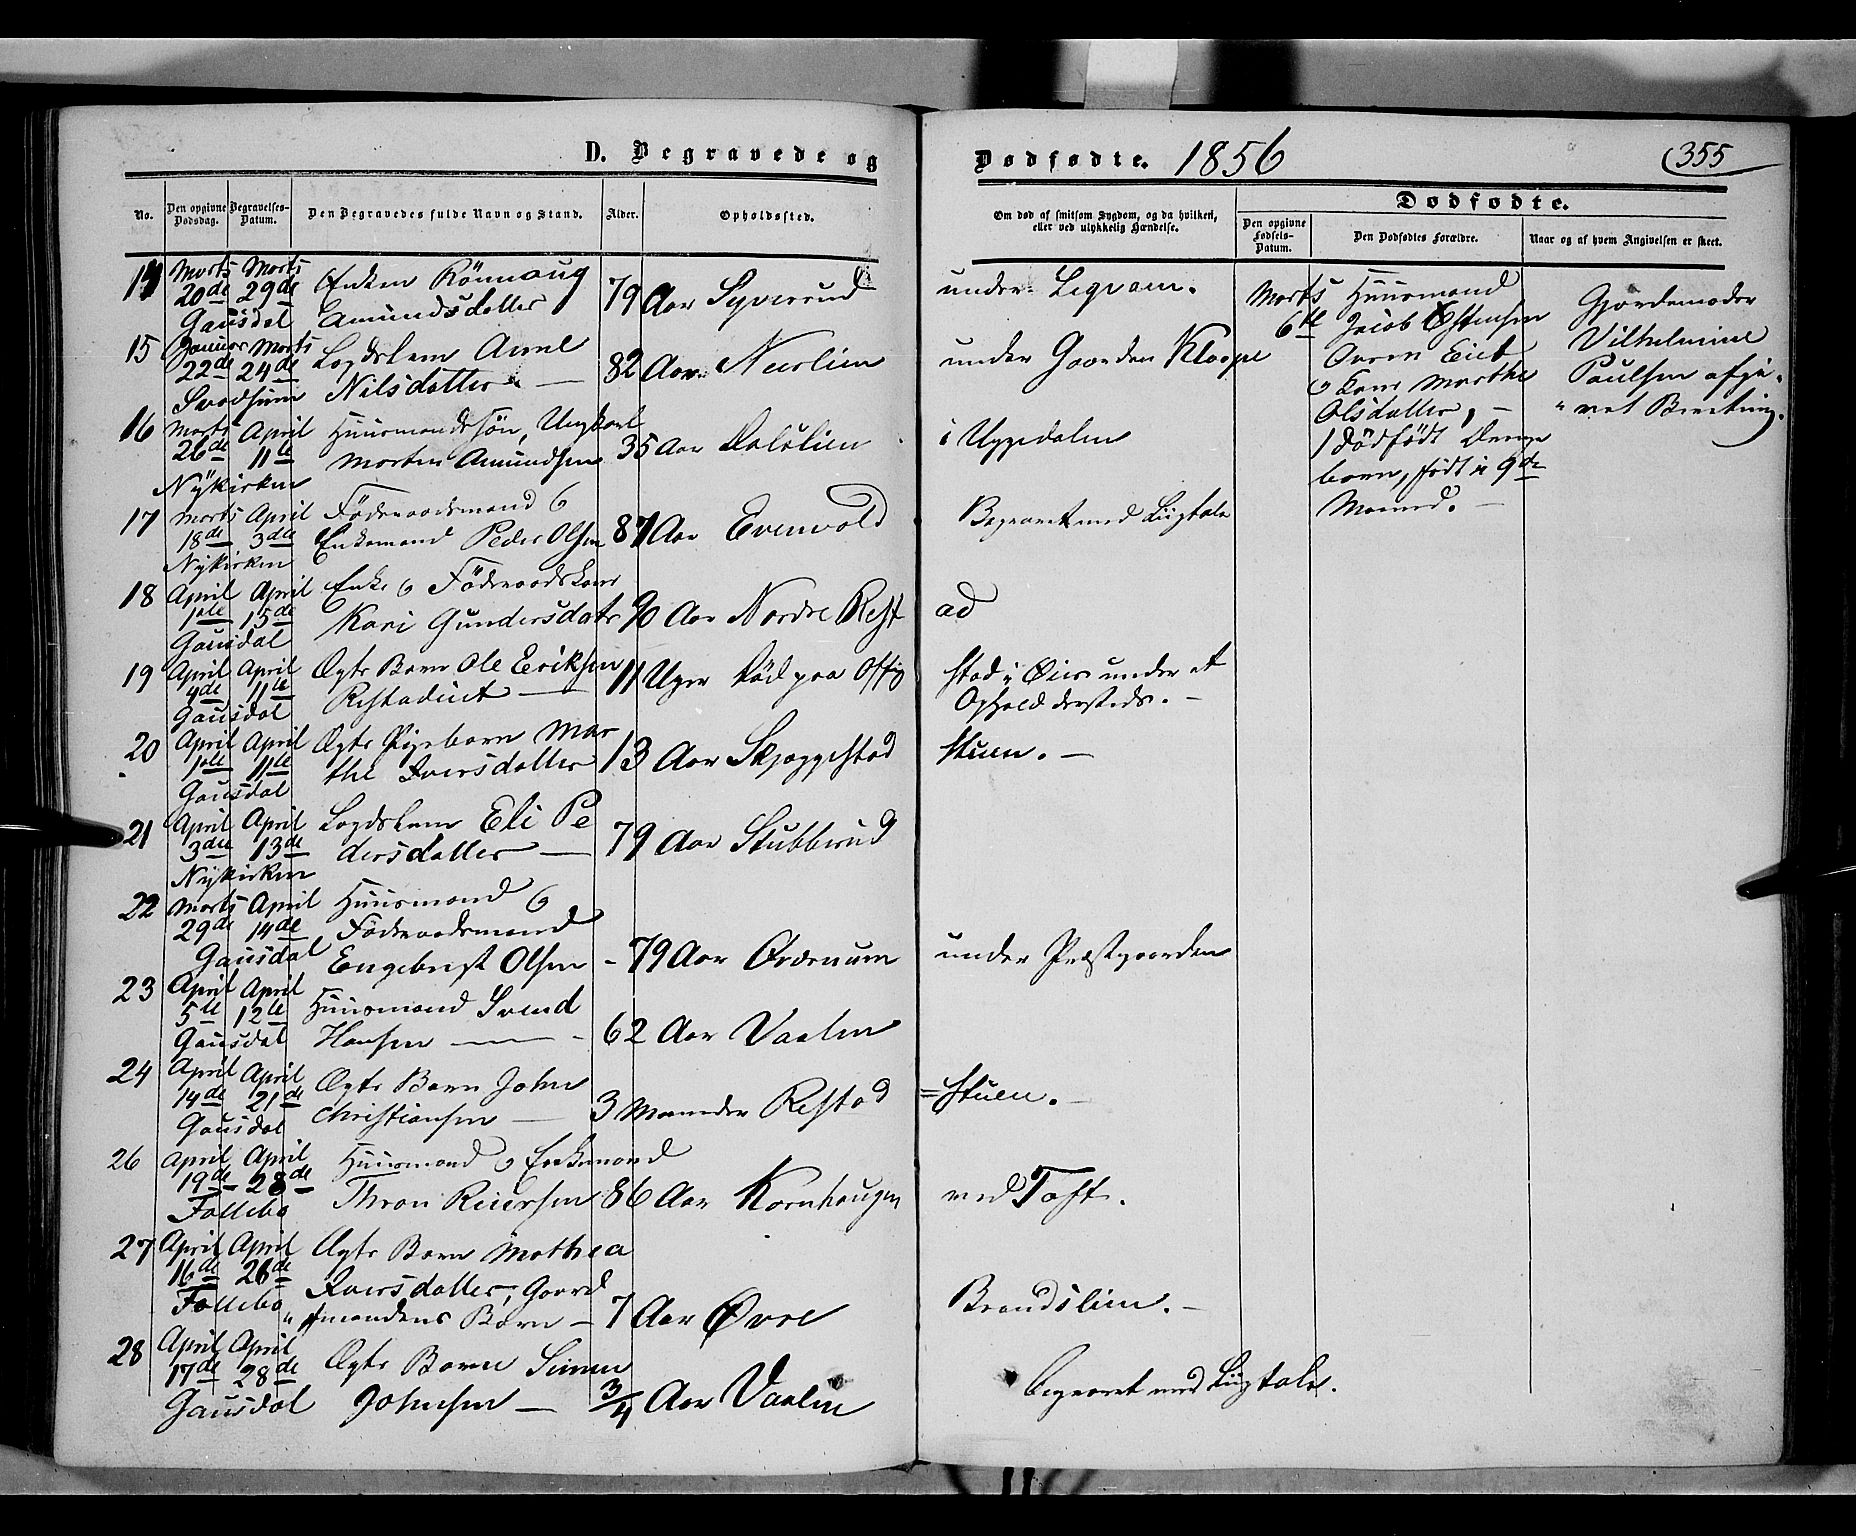 D. Begravede og Dødfødte. 1856 355
No. Den opgivne Dødsdag. Begravelses-Datum. Den Begravedes fulde Navn og Stand. Alder. Opholdssted. Om død af smitsom Sygdom, og da hvilken, eller ved ulykkelig Hændelse.
Dødfødte.
Den opgivne Fødsels-Datum. Den Dødfødtes Forældre. Naar og af hvem Angivelsen er skeet.
14 Marts Marts Enken Rönnaug
20de 29de Amundsdatter 79 Aar Syverud under Legvam.
Gausdal
15 Januar Marts Lægdslem Anne
22de 24de Nilsdatter 82 Aar Neerlien under Gaarden Kloppe
Svadsum
16 Marts April Huusmandssön, Ungkarl
26de 11te Morten Amundsen 35 Aar Dalslien i Uggedalen
Nÿkirken
17 Marts April Föderaadsmand o
18de 3die Enkemand Peder Olsen 87 Aar Evenvold Begravet med Liigtale
Nÿkirken
18 April April Enke o Föderaadskone
1ste 15de Kari Gundersdatr 90 Aar Nordre Rest ad
Gausdal
19 April April Ægte Barn Ole Eriksen
4de 11te Restadeiet 11 Uger død paa Offig stad i Öier under et
Gausdal Ophold dersteds.
20 April April Ægte Pigebarn Mar
1ste 11te the Iversdatter 13 Aar Skjæggestad stuen.
Gausdal
21 April April Lægdslem Eli Pe
3die 13de dersdatter 79 Aar Stubberud
Nÿkirken
22 Marts April Huusmand o
29de 14de Föderaadsmand
Gausdal Engebrigt Olsen 79 Aar under Præstgaarden
23 April April Huusmand Svend
5te 12te Hansen 62 Aar Vaalen
Gausdal
24 April April Ægte Barn John
14de 21de Christiansen 3 Maaneder Restad =stuen.
Gausdal
26 April April Huusmand o Enkemand
19de 28de Thron Reiersen 86 Aar Kornhaugen ved Toft.
Follebo
27 April April Ægte Barn Mathea
16de 26de Iversdatter, Gaard
Follebo mandens Barn 7 Aar Øvre Brandslien.
28 April April Ægte Barn Simen
17de 28de Johnsen 3/4 Aar Vaalen begravet med Liigtale.
Gausdal
Marts Huusmand
6te Jacob Østensen
o Kone Marthe
Olsdatter,
1 dödfödt Drenge
barn, födt i 9de
Maaned.
Gjordemoder
Vilhelmine
Paulsen afgi-
vet Beretning.